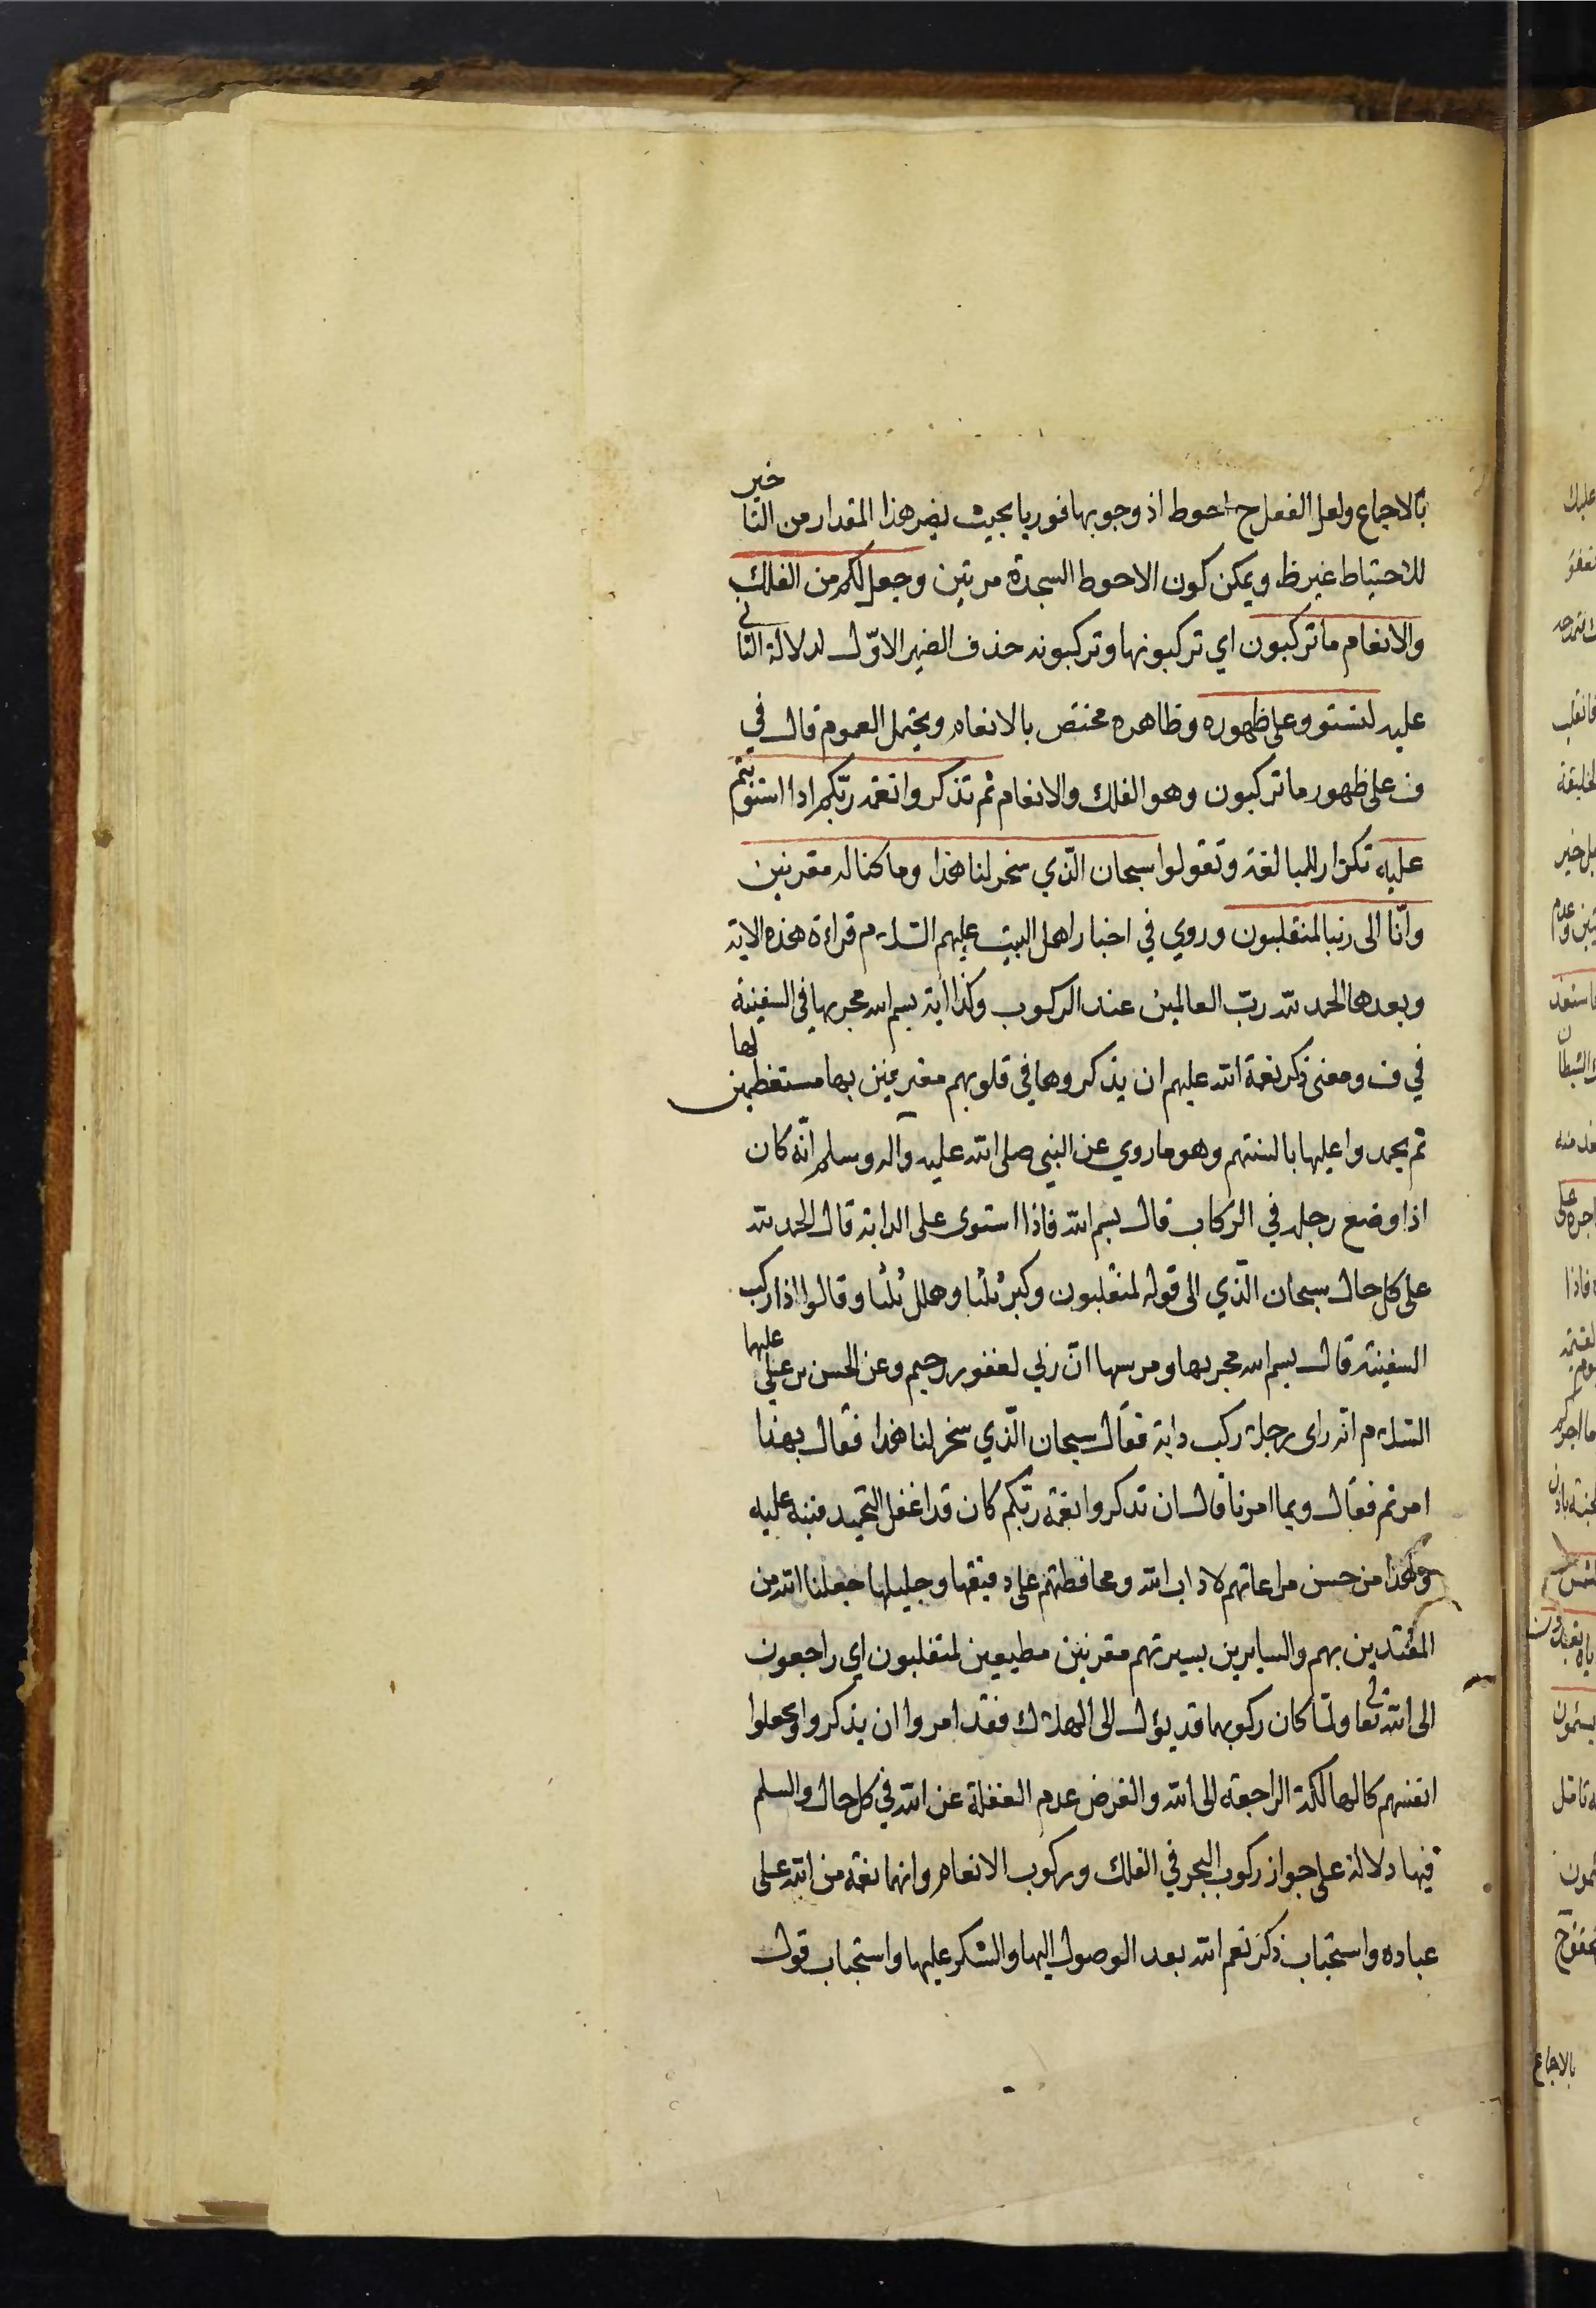 بالاجماع ولعل الفعل ح احوط اذ وجوبها فوريا بحيث يضر هذا المقدار من التاخير
للاحتياط غير ظ ويمكن كون الاحوط السجدة مرتين وجعل لكم من الفلك
والانعام ما تركبون اي تركبونها وتركبونه حذف الضمير الاوّل لدلالة الثاني
عليه لتستووا على ظهوره وظاهره مختص بالانعام ويحتمل العموم قال في
ف على ظهور ما تركبون وهو الفلك والانعام ثم تذكروا نعمة ربّكم اذا استويتم
عليه تكرار للمبالغة وتقولوا سبحان الّذي سخر لنا هذا وما كنا له مقرنين
وانّا الى ربنا لمنقلبون وروي في اخبار اهل البيت عليهم السلام قراءة هذه الاية
وبعدها الحمد لله ربّ العالمين عند الركوب وكذا اية بسم الله مجريها في السفينة
في ف ومعنى ذكر نعمة الله عليهم ان يذكروها في قلوبهم معترفين بها مستعظمين لها
ثم يحمدوا عليها بالسنتهم وهو ما روي عن النبي صلى الله عليه وآله وسلم انّه كان
اذا وضع رجله في الركاب قال بسم الله فاذا استوى على الدابة قال الحمد لله
على كل حال سبحان الّذي الى قوله لمنقلبون وكبر ثلثا وهلل ثلثا وقالوا اذا ركب
السفينة قال بسم الله مجريها ومرسها انّ ربي لغفور رحيم وعن الحسن بن علي عليها
السلام انّه راى رجلا ركب دابة فقال سبحان الّذي سخر لنا هذا فقال بهذا
امرتم فقال وبما امرنا قال ان تذكروا نعمة ربّكم كان قد اغفل التحميد فنبه عليه
وهذا من حسن مراعاتهم لاداب الله ومحافظتهم على دقيقها وجليلها جعلنا الله من
المقتدين بهم والسايرين بسيرتهم مقرنين مطيعين لمنقلبون اي راجعون
الى الله تعالى ولما كان ركوبهما قد يؤل الى الهلاك فقد امروا ان يذكروا ويجعلوا
انفسهم كالهالكة الراجعة الى الله والغرض عدم الغفلة عن الله في كل حال والسلم
فيها دلالة على جواز ركوب البحر في الفلك وركوب الانعام وانهما نعمة من الله على
عباده واستحباب ذكر نعم الله بعد الوصول اليها والشكر عليها واستحباب قول